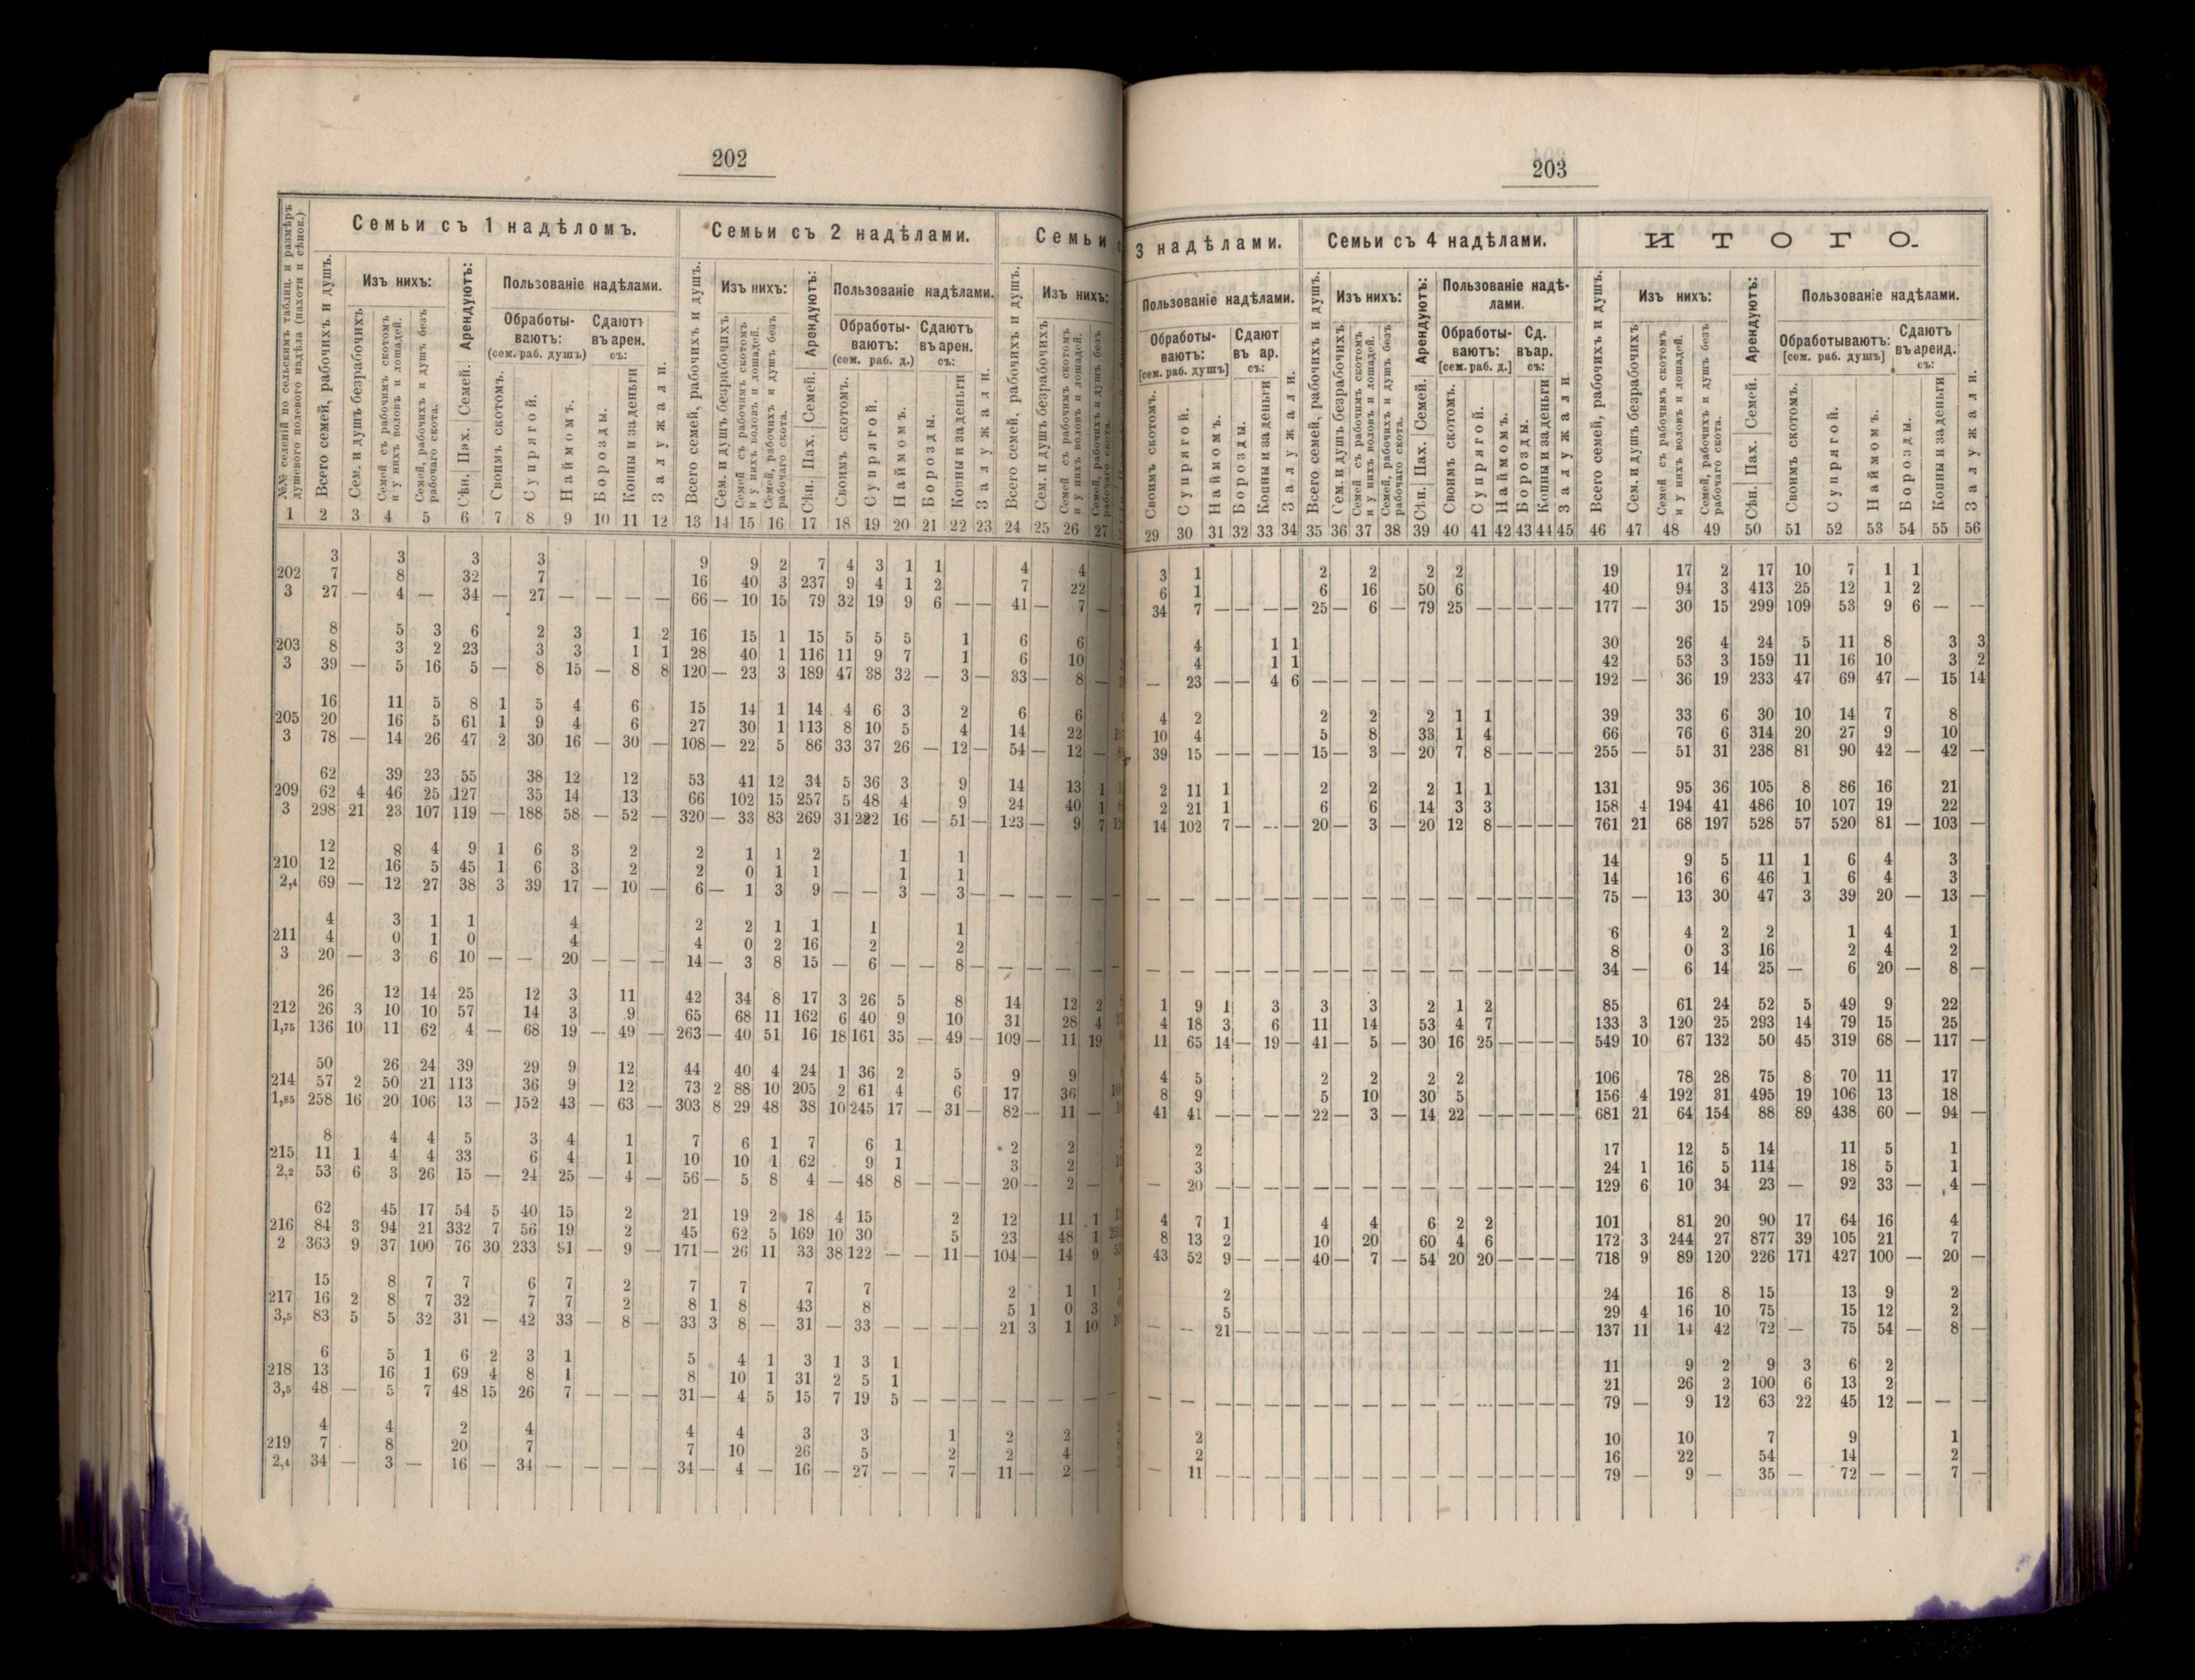 202
Семьи съ 1 надѣломъ. Семьи съ 2 надѣлами. Семьи с
№№ селеній по сельскимъ таблиц. и размѣръ душевого полевого надѣла (пахоти и сѣнок.)
Всего семей, рабочихъ и душъ.
Изъ нихъ:
Сем. и душъ безрабочихъ
Семей съ рабочимъ скотомъ и у нихъ воловъ и лошадей.
Семей, рабочихъ и душъ безъ рабочаго скота.
Арендуютъ:
Сѣн. Пах. Семей.
Пользованіе надѣлами.
Обработы-
ваютъ:
(сем. раб. душъ)
Своимъ скотомъ.
Супрягой.
Наймомъ.
Сдаютъ
въ арен.
съ:
Борозды.
Копны и за деньги
Залужали.
Всего семей, рабочихъ и душъ.
Изъ нихъ:
Сем. и душъ безрабочихъ
Семей съ рабочимъ скотомъ и у нихъ воловъ и лошадей.
Семей, рабочихъ и душъ безъ рабочаго скота.
Арендуютъ:
Сѣн. Пах. Семей.
Пользованіе надѣлами.
Обработы-
ваютъ:
(сем. раб. д.)
Своимъ скотомъ.
Супрягой.
Наймомъ.
Сдаютъ
въ арен.
съ:
Борозды.
Копны и за деньги
Залужали.
Всего семей, рабочихъ и душъ.
Изъ нихъ:
Сем. и душъ безрабочихъ
Семей съ рабочимъ скотомъ и у нихъ воловъ и лошадей.
Семей, рабочихъ и душъ безъ рабочаго скота.
1 2 3 4 5 6 7 8 9 10 11 12 13 14 15 16 17 18 19 20 21 22 23 24 25 26 27
3 3 3 3 9 9 2 7 4 3 1 1 4 4
202 7 8 32 7 16 40 3 237 9 4 1 2 7 22
3 27 — 4 — 34 — 27 — — — — 66 — 10 15 79 32 19 9 6 — — 41 — 7 —
8 5 3 6 2 3 1 2 16 15 1 15 5 5 5 1 6 6
203 8 3 2 23 3 3 1 1 28 40 1 116 11 9 7 1 6 10
3 39 — 5 16 5 — 8 15 — 8 8 120 — 23 3 189 47 38 32 — 3 — 33 — 8 —
16 11 5 8 1 5 4 6 15 14 1 14 4 6 3 2 6 6
205 20 16 5 61 1 9 4 6 27 30 1 113 8 10 5 4 14 22
3 78 — 14 26 47 2 30 16 — 30 — 108 — 22 5 86 33 37 26 — 12 — 54 — 12 —
62 39 23 55 38 12 12 53 41 12 34 5 36 3 9 14 13 1
209 62 4 46 25 127 35 14 13 66 102 15 257 5 48 4 9 24 40 1
3 298 21 23 107 119 — 188 58 — 52 — 320 — 33 83 269 31 222 16 — 51 — 123 — 9 7
12 8 4 9 1 6 3 2 2 1 1 2 1 1
210 12 16 5 45 1 6 3 2 2 0 1 1 1 1
2,4 69 — 12 27 38 3 39 17 — 10 — 6 — 1 3 9 — — 3 — 3 — — — — —
4 3 1 1 4 2 2 1 1 1 1
211 4 0 1 0 4 4 0 2 16 2 2
3 20 — 3 6 10 — — 20 — — — 14 — 3 8 15 — 6 — — 8 — — — — —
26 12 14 25 12 3 11 42 34 8 17 3 26 5 8 14 12 2
212 26 3 10 10 57 14 3 9 65 68 11 162 6 40 9 10 31 28 4
1,75 136 10 11 62 4 — 68 19 — 49 — 263 — 40 51 16 18 161 35 — 49 — 109 — 11 19
50 26 24 39 29 9 12 44 40 4 24 1 36 2 5 9 9
214 57 2 50 21 113 36 9 12 73 2 88 10 205 2 61 4 6 17 36
1,85 258 16 20 106 13 — 152 43 — 63 — 303 8 29 48 38 10 245 17 — 31 — 82 — 11 —
8 4 4 5 3 4 1 7 6 1 7 6 1 2 2
215 11 1 4 4 33 6 4 1 10 10 1 62 9 1 3 2
2,2 53 6 3 26 15 — 24 25 — 4 — 56 — 5 8 4 — 48 8 — — — 20 — 2 —
62 45 17 54 5 40 15 2 21 19 2 18 4 15 2 12 11 1
216 84 3 94 21 332 7 56 19 2 45 62 5 169 10 30 5 23 48 1
2 363 9 37 100 76 30 233 91 — 9 — 171 — 26 11 33 38 122 — — 11 — 104 — 14 9
15 8 7 7 6 7 2 7 7 7 7 2 1 1
217 16 2 8 7 32 7 7 2 8 1 8 43 8 5 1 0 3
3,5 83 5 5 32 31 — 42 33 — 8 — 33 3 8 — 31 — 33 — — — — 21 3 1 10
6 5 1 6 2 3 1 5 4 1 3 1 3 1
218 13 16 1 69 4 8 1 8 10 1 31 2 5 1
3,5 48 — 5 7 48 15 26 7 — — — 31 — 4 5 15 7 19 5 — — — — — — —
4 4 2 4 4 4 3 3 1 2 2
219 7 8 20 7 7 10 26 5 2 2 4
2,4 34 — 3 — 16 — 34 — — — — 34 — 4 — 16 — 27 — — 7 — 11 — 2 —
203
3 надѣлами. Семьи съ 4 надѣлами. ИТОГО.
Пользованіе надѣлами.
Обработы-
ваютъ:
[сем. раб. душъ]
Своимъ скотомъ.
Супрягой.
Наймомъ.
Сдают
въ ар.
съ:
Борозды.
Копны и за деньги
Залужали.
Всего семей, рабочихъ и душъ.
Изъ нихъ:
Сем. и душъ безрабочихъ
Семей съ рабочимъ скотомъ и у нихъ воловъ и лошадей.
Семей, рабочихъ и душъ безъ рабочаго скота.
Арендуютъ:
Сѣн. Пах. Семей.
Пользованіе надѣ-
лами.
Обработы-
ваютъ:
[сем. раб. д.]
Своимъ скотомъ.
Супрягой.
Наймомъ.
Сд.
въ ар.
съ:
Борозды.
Копны и за деньги
Залужали.
Всего семей, рабочихъ и душъ.
Изъ нихъ:
Сем. и душъ безрабочихъ
Семей съ рабочимъ скотомъ и у нихъ воловъ и лошадей.
Семей, рабочихъ и душъ безъ рабочаго скота.
Арендуютъ:
Сѣн. Пах. Семей.
Пользованіе надѣлами.
Обработываютъ:
[сем. раб. душъ]
Своимъ скотомъ.
Супрягой.
Наймомъ.
Сдаютъ
въ аренд.
съ:
Борозды.
Копны и за деньги
Залужали.
29 30 31 32 33 34 35 36 37 38 39 40 41 42 43 44 45 46 47 48 49 50 51 52 53 54 55 56
3 1 2 2 2 2 19 17 2 17 10 7 1 1
6 1 6 16 50 6 40 94 3 413 25 12 1 2
34 7 — — — — 25 — 6 — 79 25 — — — — — 177 — 30 15 299 109 53 9 6 — —
4 1 1 30 26 4 24 5 11 8 3 3
4 1 1 42 53 3 159 11 16 10 3 2
— 23 — — 4 6 — — — — — — — — — — — 192 — 36 19 233 47 69 47 — 15 14
4 2 2 2 2 1 1 39 33 6 30 10 14 7 8
10 4 5 8 33 1 4 66 76 6 314 20 27 9 10
39 15 — — — — 15 — 3 — 20 7 8 — — — — 255 — 51 31 238 81 90 42 — 42 —
2 11 1 2 2 2 1 1 131 95 36 105 8 86 16 21
2 21 1 6 6 14 3 3 158 4 194 41 486 10 107 19 22
14 102 7 — — — 20 — 3 — 20 12 8 — — — — 761 21 68 197 528 57 520 81 — 103 —
14 9 5 11 1 6 4 3
14 16 6 46 1 6 4 3
— — — — — — — — — — — — — — — — — 75 — 13 30 47 3 39 20 — 13 —
6 4 2 2 1 4 1
8 0 3 16 2 4 2
— — — — — — — — — — — — — — — — — 34 — 6 14 25 — 6 20 — 8 —
1 9 1 3 3 3 2 1 2 85 61 24 52 5 49 9 22
4 18 3 6 11 14 53 4 7 133 3 120 25 293 14 79 15 25
11 65 14 — 19 — 41 — 5 — 30 16 25 — — — — 549 10 67 132 50 45 319 68 — 117 —
4 5 2 2 2 2 106 78 28 75 8 70 11 17
8 9 5 10 30 5 156 4 192 31 495 19 106 13 18
41 41 — — — — 22 — 3 — 14 22 — — — — — 681 21 64 154 88 89 438 60 — 94 —
2 17 12 5 14 11 5 1
3 24 1 16 5 114 18 5 1
— 20 — — — — — — — — — — — — — — — 129 6 10 34 23 — 92 33 — 4 —
4 7 1 4 4 6 2 2 101 81 20 90 17 64 16 4
8 13 2 10 20 60 4 6 172 3 244 27 877 39 105 21 7
43 52 9 — — — 40 — 7 — 54 20 20 — — — — 718 9 89 120 226 171 427 100 — 20 —
2 24 16 8 15 13 9 2
5 29 4 16 10 75 15 12 2
— — 21 — — — — — — — — — — — — — — 137 11 14 42 72 — 75 54 — 8 —
11 9 2 9 3 6 2
21 26 2 100 6 13 2
— — — — — — — — — — — — — — — — — 79 — 9 12 63 22 45 12 — — —
2 10 10 7 9 1
2 16 22 54 14 2
— 11 — — — — — — — — — — — — — — — 79 — 9 — 35 — 72 — — 7 —